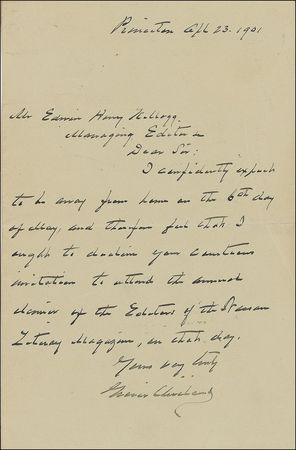 Princeton Apl 23. 1901
Mr Edwin Henry Kellogg.
Managing Editor
Dear Sir:
I confidently expect
to be away from home on the 6th day
of May, and therefore feel that I
ought to decline your courteous
invitation to attend the annual
dinner of the Editors of the Nassau
Literary Magazine, on that day.
Yours very truly
Grover Cleveland